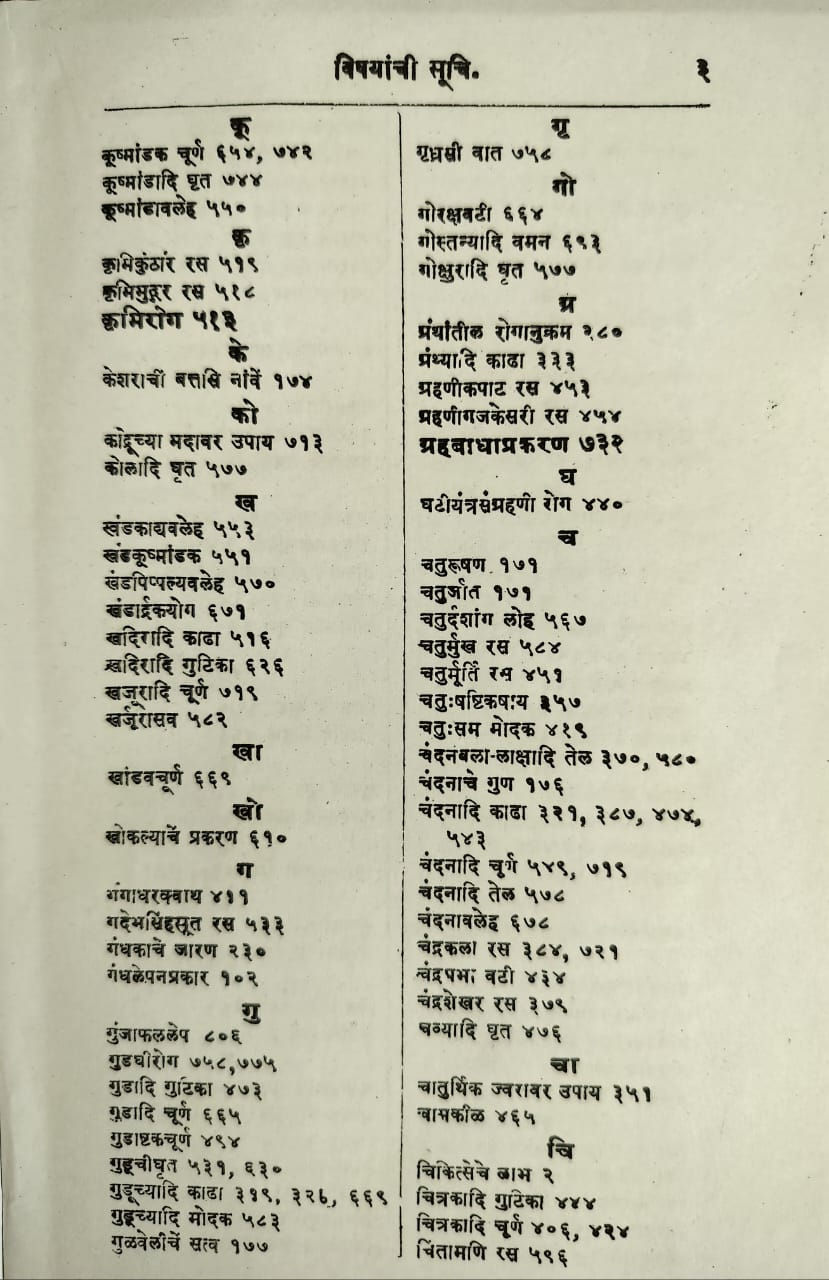 विषयांची सूचि.
३
कू
कूष्मांडक चूर्ण ६५४, ७४२
कूष्मांडादि घृत ७४४
कूष्मांडावलेह ५५०
कृ
कृमिकुंठार रस ५१९
कृमिमुद्गर रस ५१८
कृमिरोग ५१३
के
केशराचीं बत्तीस नांवें १७४
को
कोद्रूच्या मदावर उपाय ७१३
कोलादि घृत ५७७
ख
खंडकाद्यवलेह ५५३
खंडकूष्मांडक ५५१
खंडपिप्पल्यवलेह ५७०
खंडार्द्रकयोग ६७१
खदिरादि काढा ५१६
खदिरादि गुटिका ६२६
खर्जूरादि चूर्ण ७१९
खर्जूरासव ५८२
खा
खांडवचूर्ण ६६९
खो
खोकल्याचें प्रकरण ६१०
ग
गंगाधरक्वाथ ४११
गर्दभसिंहसूत रस ५३३
गंधकाचे जारण २३०
गंधलेपनप्रकार १०२
गु
गुंजाफललेप ८०६
गुडघीरोग ७५८,७७५
गुडादि गुटिका ४७३
गूडादि चूर्ण ६६५
गुडाष्टकचूर्ण ४९४
गुडूचीघृत ५३१, ६३०
गुडूच्यादि काढा ३१९, ३२६, ६६९
गुडूच्यादि मोदक ५८३
गुळवेलीचें सत्व १७७
गृ
गृध्रसी वात ७५८
गो
गोरक्षवटी ६६४
गोस्तन्यादि वमन ६९३
गोक्षुरादि घृत ५७७
ग्र
ग्रंथांतील रोगानुक्रम २८०
ग्रंथ्यादि काढा ३३३
ग्रहणीकपाट रस ४५३
ग्रहणीगजकेसरी रस ४५४
ग्रहबाधाप्रकरण ७३२
घ
घटीयंत्रसंग्रहणी रोग ४४०
च
चतुरूषण १७१
चतुर्जात १७१
चतुर्दशांग लोह ५६७
चतुर्मुख रस ५८४
चतुर्मूर्ति रस ४५१
चतुःषष्टिकषाय ३५७
चतुःसम मोदक ४१९
चंदनबला-लाक्षादि तेल ३७०, ५८०
चंदनाचे गुण १७६
चंदनादि काढा ३२१, ३८७, ४७४,
५४३
चंदनादि चूर्ण ५४९, ७१९
चंदनादि तेल ५७८
चंदनावलेह ६७८
चंद्रकला रस ३८४, ७२१
चंद्रप्रभा वटी ४३४
चंद्रशेखर रस ३७९
चव्यादि घृत ४७६
चा
चातुर्थिक ज्वरावर उपाय ३५१
चामकीळ ४६५
चि
चिकित्सेचे लाभ २
चित्रकादि गुटिका ४४४
चित्रकादि चूर्ण ४०६, ४२४
चिंतामणि रस ५९६